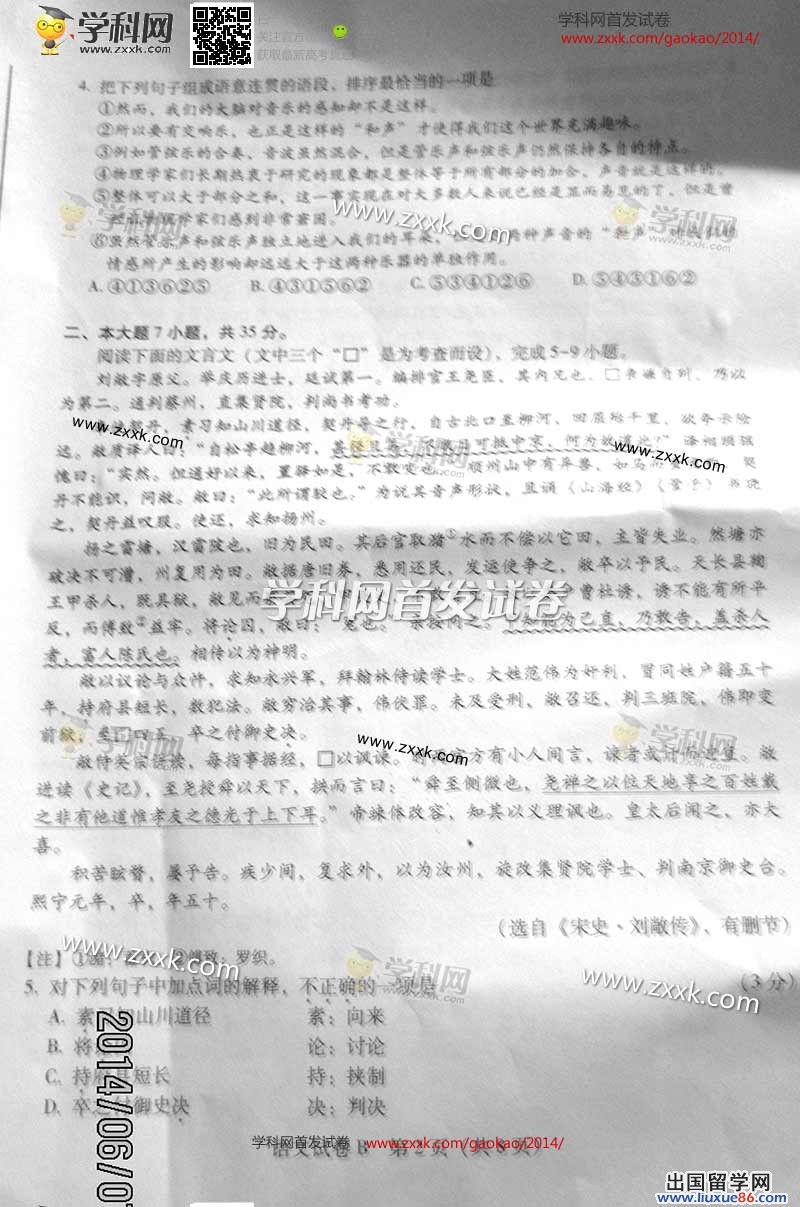 学科网
www.zxxk.com
获取最新高考真题
学科网首发试卷
www.zxxk.com/gaokao/2014/
4. 把下列句子组成语意连贯的语段，排序最恰当的一项是
①然而，我们的大脑对音乐的感知却不是这样。
②所以要有交响乐，也正是这样的“和声”才使得我们这个世界充满趣味。
③例如管弦乐的合奏，音波虽然混合，但是管乐声和弦乐声仍然保持各自的特点。
④物理学家们长期热衷于研究的现象都是整体等于所有部分的加合，声音就是这样的。
⑤整体可以大于部分之和，这一事实现在对大多数人来说已经是显而易见的了，但是曾
物理学家们感到非常窘困。
⑥虽然管乐声和弦乐声独立地进入我们的耳朵，
情感所产生的影响却远远大于这两种乐器的单独作用。
A. ④①③⑥②⑤ B. ④③①⑤⑥② C. ⑤③④①②⑥ D. ⑤④③①⑥②
二、本大题7小题，共35分。
阅读下面的文言文（文中三个“□”是为考查而设），完成5-9小题。
刘敞字原父。举庆历进士，廷试第一。编排官王尧臣，其内兄也，□ 乃以
为第二。通判蔡州，直集贤院，判尚书考功。
契丹，素习知山川道径，契丹导之行，自古北口至柳河，回屈殆千里，欲夸示险
远。敞质译人曰：“自松亭趋柳河， 不数日可抵中京，何为故道此？”译相顾骇
愧曰：“实然。但通好以来，置驿如是，不敢变也。”顺州山中有异兽，如马而 契
丹不能识，问敞。敞曰：“此所谓驳也。”为说其音声形状，且诵《山海经》《管子》书晓
之，契丹益叹服。使还，求知扬州。
扬之雷塘，汉雷陂也，旧为民田。其后官取潴①水而不偿以它田，主皆失业。然塘亦
破决不可漕，州复用为田。敞据唐旧券，悉用还民，发运使争之，敞卒以予民。天长县鞫
王甲杀人，既具狱，敞见而 曾杜诱，诱不能有所平
反，而傅致②益牢。将论囚，敞曰：“冤也。”亲按问之。 知能为己直，乃敢告，盖杀人
者，富人陈氏也。相传以为神明。
敞以议论与众忤，求知永兴军，拜翰林侍读学士。大姓范伟为奸利，冒同姓户籍五十
年，持府县短长，数犯法。敞穷治其事，伟伏罪。未及受刑，敞召还，判三班院，伟即变
前狱，至□四五，卒之付御史决。
敞侍英宗讲读，每指事据经，□以讽谏。时两宫方有小人间言，谏者或讦而过直。敞
进读《史记》，至尧授舜以天下，拱而言曰：“舜至侧微也，尧禅之以位天地享之百姓戴
之非有他道惟孝友之德光于上下耳。”帝竦体改容，知其以义理讽也。皇太后闻之，亦大
喜。
积苦眩瞀，屡予告。疾少间，复求外，以为汝州，旋改集贤院学士、判南京御史台。
熙宁元年，卒，年五十。
（选自《宋史·刘敞传》，有删节）
【注】① ②傅致：罗织。
5. 对下列句子中加点词的解释，不正确的一项是 （3分）
A. 素 知山川道径 素：向来
B. 将 论：讨论
C. 持府县短长 持：挟制
D. 卒之付御史决 决：判决
2014/06/0
学科网首发试卷 www.zxxk.com/gaokao/2014/
语文试卷B 第2页（共8页）
出国留学网
www.liuxue86.com